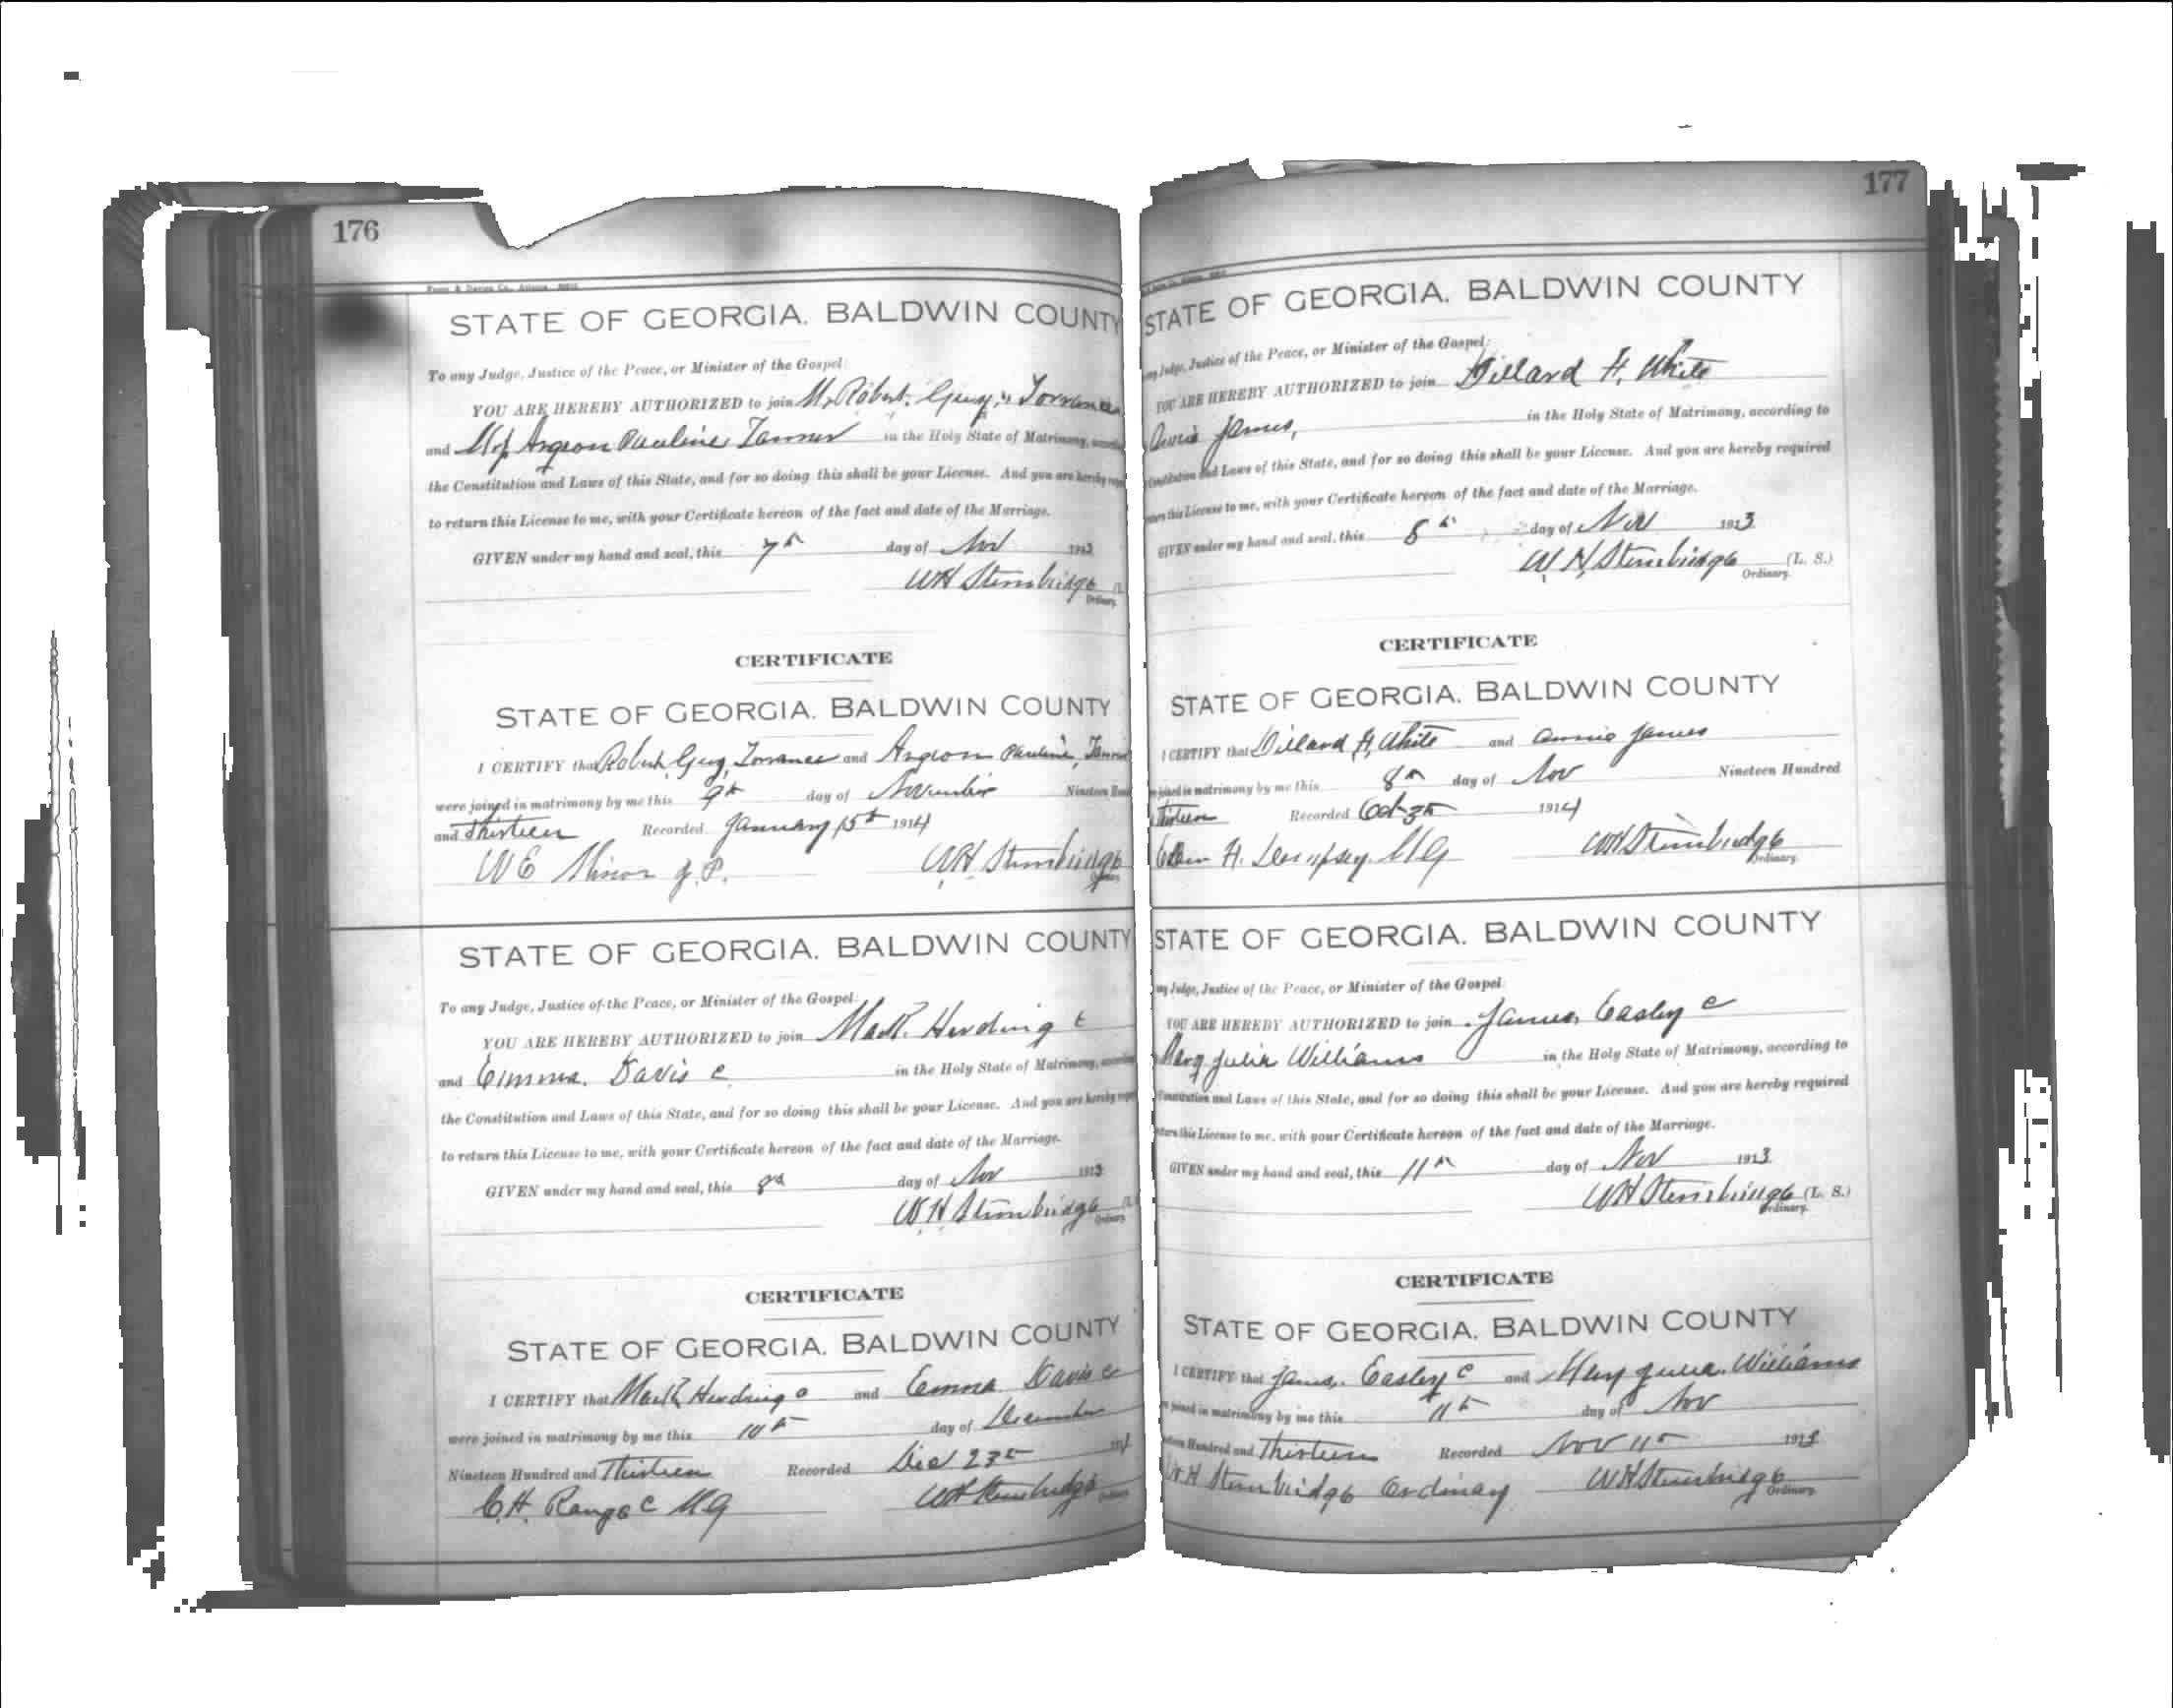 176
STATE OF GEORGIA. BALDWIN COUNTY
To any Judge, Justice of the Peace, or Minister of the Gospel:
YOU ARE HEREBY AUTHORIZED to join Mr Robert Guy Torrance
and Pauline Tanner in the Holy State of Matrimony,
the Constitution and Laws of this State, and for so doing this shall be your License. And you are hereby
to return this License to me, with your Certificate hereon of the fact and date of the Marriage.
GIVEN under my hand and seal, this 7th day of Nov 1913
WH Stembridge
Ordinary
CERTIFICATE
STATE OF GEORGIA. BALDWIN COUNTY
I CERTIFY that Robert Guy Torrance and Pauline
were joined in matrimony by me this 9th day of November Nineteen
and Thirteen Recorded January 15th 1914
W E J.P. WH Stembridge
Ordinary
STATE OF GEORGIA. BALDWIN COUNTY
To any Judge, Justice of the Peace, or Minister of the Gospel:
YOU ARE HEREBY AUTHORIZED to join Mack Harding c
and Emma Davis c in the Holy State of Matrimony,
the Constitution and Laws of this State, and for so doing this shall be your License. And you are hereby
to return this License to me, with your Certificate hereon of the fact and date of the Marriage.
GIVEN under my hand and seal, this day of Nov 1913
W.H. Stembridge
Ordinary
CERTIFICATE
STATE OF GEORGIA. BALDWIN COUNTY
I CERTIFY that Mack Harding c and Emma Davis c
were joined in matrimony by me this 10th day of December
Nineteen Hundred and Thirteen Recorded Dec 23
C.H. Range c MG WH Stembridge
Ordinary
177
STATE OF GEORGIA. BALDWIN COUNTY
Judge, Justice of the Peace, or Minister of the Gospel:
YOU ARE HEREBY AUTHORIZED to join Dillard H. White
Annie James, in the Holy State of Matrimony, according to
Constitution and Laws of this State, and for so doing this shall be your License. And you are hereby required
this License to me, with your Certificate hereon of the fact and date of the Marriage.
GIVEN under my hand and seal, this 8th day of Nov 1913
W H Stembridge (L. S.)
Ordinary.
CERTIFICATE
STATE OF GEORGIA. BALDWIN COUNTY
I CERTIFY that Dillard H, White and Annie James
joined in matrimony by me this 8th day of Nov Nineteen Hundred
Thirteen Recorded Oct 1914
H. Dempsey. MG WH Stembridge
Ordinary.
STATE OF GEORGIA. BALDWIN COUNTY
Judge, Justice of the Peace, or Minister of the Gospel:
YOU ARE HEREBY AUTHORIZED to join James Easley c
Mary Julia Williams in the Holy State of Matrimony, according to
Constitution and Laws of this State, and for so doing this shall be your License. And you are hereby required
this License to me, with your Certificate hereon of the fact and date of the Marriage.
GIVEN under my hand and seal, this 11th day of Nov 1913
WH Stembridge (L. S.)
Ordinary.
CERTIFICATE
STATE OF GEORGIA. BALDWIN COUNTY
I CERTIFY that James Easley c and Mary Julia Williams
joined in matrimony by me this 11th day of Nov
Hundred and Thirteen Recorded Nov 11th 1913
WH Stembridge Ordinary WH Stembridge
Ordinary.